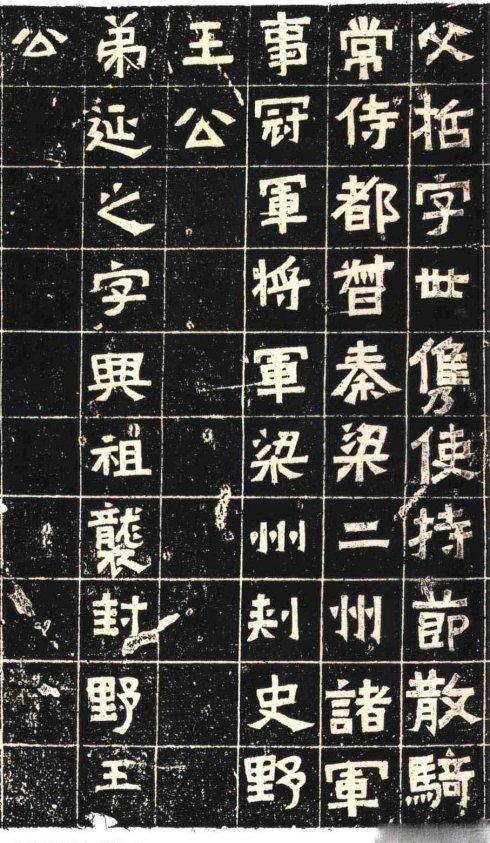 父哲字世儁使持節散騎
常侍都督秦梁二州諸軍
事冠軍將軍梁州刾史野
王公
弟延之字興祖襲封野王
公